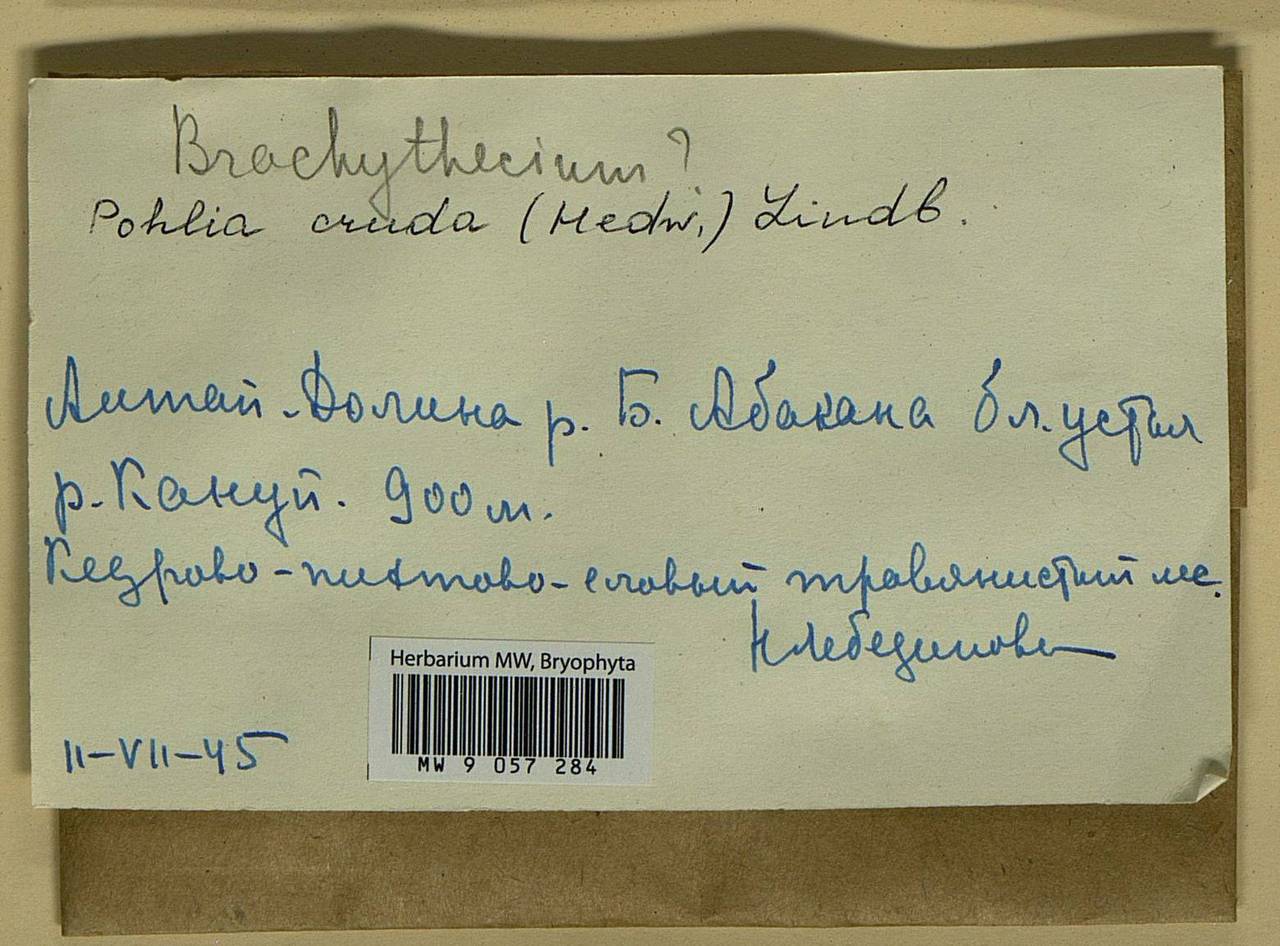 Brachythecium?
Pohlia cruda (Hedw.) Lindb.
Алтай. Долина р. Б. Абакана бл. устья
р. Кануй. 900 м.
Кедрово-пихтово-еловый травянистый лес.
Н Лебединова
Herbarium MW, Bryophyta
MW 9 057 284
11-VII-45